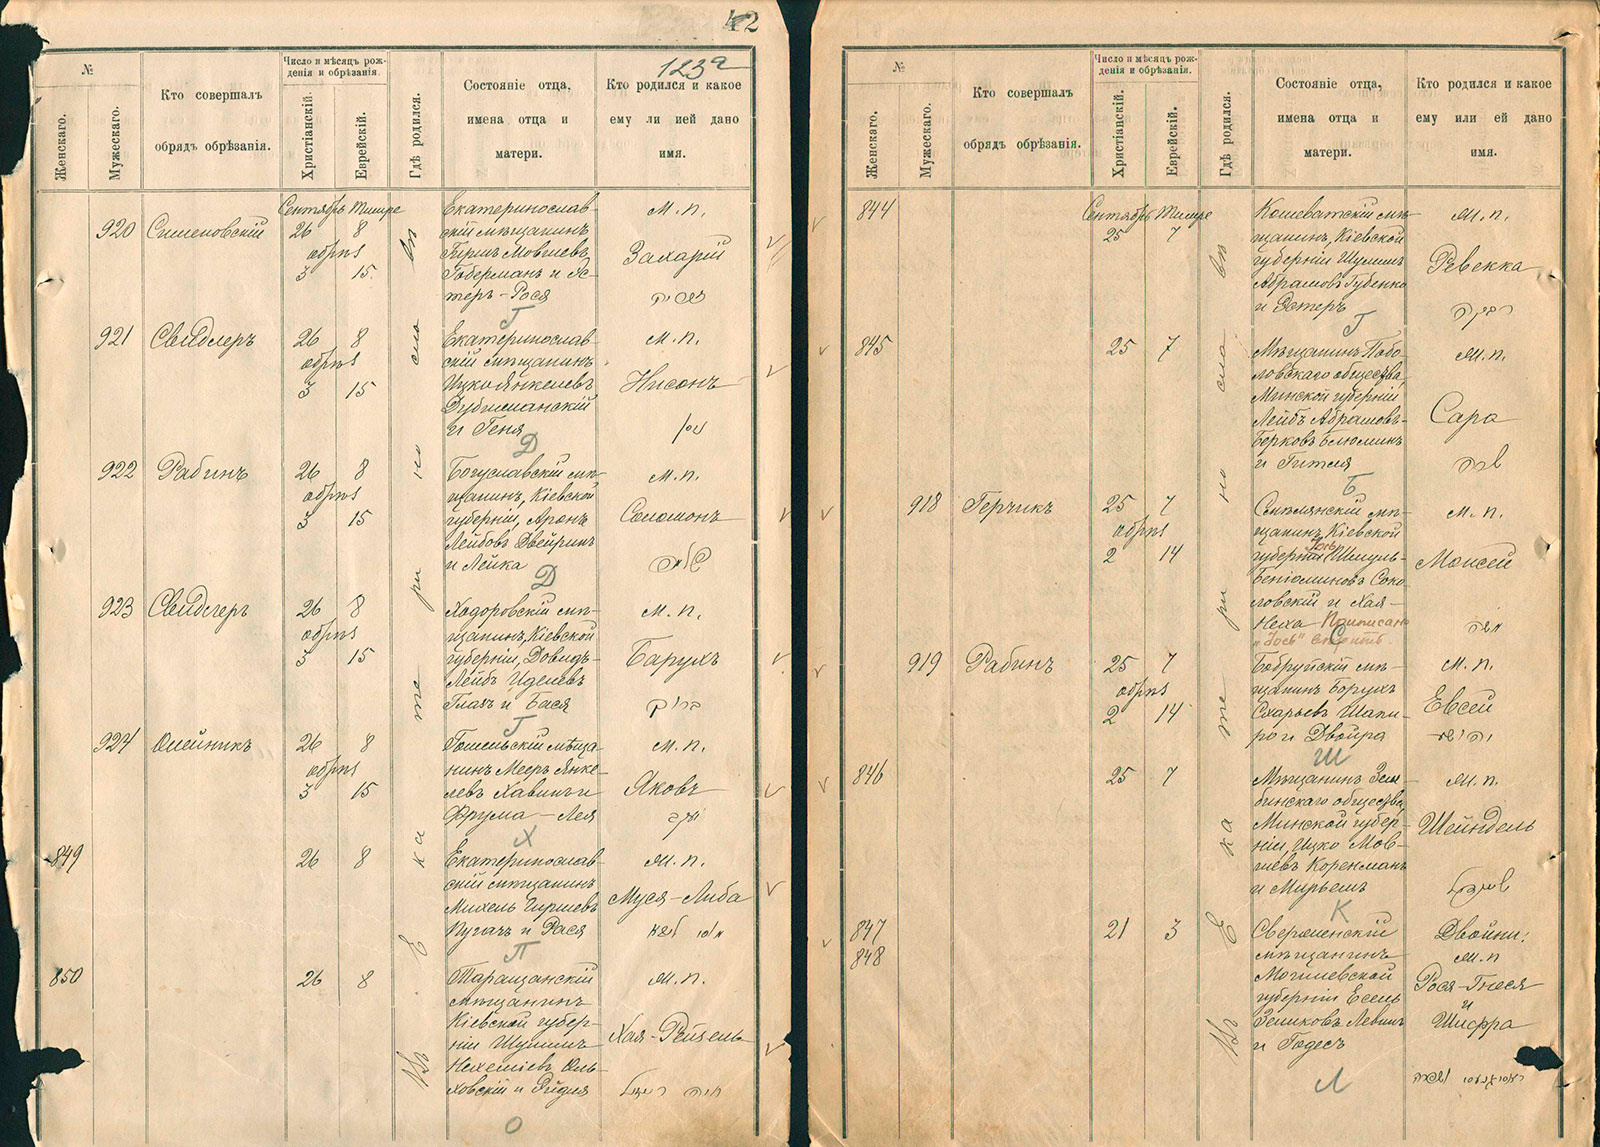 42
123а
№
Женскаго.
Мужескаго.
Кто совершалъ
обрядъ обрѣзанія.
Число и мѣсяцъ рож-
денія и обрѣзанія.
Христіанскій.
Еврейскій.
Гдѣ родился.
Состояніе отца,
имена отца и
матери.
Кто родился и какое
ему ли ией дано
имя.
Въ Екатеринославѣ
Сентябрь Тишре
920 Сименовскій 26 8
обрѣз
3 15
Екатеринослав-
скій мѣщанинъ
Гиршъ Мовшевъ
Гоберманъ и Эс-
теръ-Рося
Г
м.п.
Захарій
921 Свидлеръ 26 8
обрѣз
3 15
Екатеринослав-
скій мѣщанинъ
Ицко Янкелевъ
Дубиманскій
и Геня
Д
м.п.
Нисонъ
ניסן
922 Рабинъ 26 8
обрѣз
3 15
Богуславскій мѣ-
щанинъ, Кіевской
губерніи, Аронъ
Лейбовъ Двейринъ
и Лейка
Д
м.п.
Соломонъ
שלמה
923 Свидлеръ 26 8
обрѣз
3 15
Ходоровскій мѣ-
щанинъ, Кіевской
губерніи, Довидъ-
Лейбъ Иделевъ
Глахъ и Бася
Г
м.п.
Барухъ
ברוך
924 Олейникъ 26 8
обрѣз
3 15
Гомельскій мѣща-
нинъ Мееръ Янке-
левъ Хавинъ и
Фрума-Лея
Х
м.п.
Яковъ
יעקב
849 26 8
Екатеринослав-
скій мѣщанинъ
Михель Гиршевъ
Пугачъ и Рася
П
м.п.
Муся-Либа
מוסי ליבא
850 26 8
Таращанскій
мѣщанинъ
Кіевской губер-
ніи Шулимъ
Нехеміевъ Оль-
ховскій и Эйдля
О
м.п.
Хая-Рейзель
חיה רייזל
№
Женскаго.
Мужескаго.
Кто совершалъ
обрядъ обрѣзанія.
Число и мѣсяцъ рож-
денія и обрѣзанія.
Христіанскій.
Еврейскій.
Гдѣ родился.
Состояніе отца,
имена отца и
матери.
Кто родился и какое
ему или ей дано
имя.
Въ Екатеринославѣ
Сентябрь Тишре
844 25 7
Кошеватскій мѣ-
щанинъ, Кіевской
губерніи Шулимъ
Абрамовъ Губенко
и Эстеръ
Г
м.п.
Ревекка
רבקה
845 25 7
Мѣщанинъ Побо-
ловскаго общества,
Минской губерніи
Лейбъ Абрамовъ-
Берковъ Блюминъ
и Гитля
Б
м.п.
Сара
שרה
918 Герчикъ 25 7
обрѣз
2 14
Смѣлянскій мѣ-
щанинъ, Кіевской
губерніи Іось Шмуль-
Беніоминовъ Соко-
ловскій и Хая-
Неха Приписано
"Іось" вѣрить.
С
м.п.
Моисей
משה
919 Рабинъ 25 7
обрѣз
2 14
Бобруйскій мѣ-
щанинъ Борухъ
Схарьевъ Шапи-
ро и Двойра
Ш
м.п.
Евсей
יהושע
846 25 7
Мѣщанинъ Зем-
бинскаго общества,
Минской губер-
ніи, Ицко Мов-
шевъ Коренманъ
и Мирьемъ
К
м.п.
Шейндель
שיינדל
847
848 21 3
Сверженскій
мѣщанинъ
Могилевской
губерніи Есель
Зеликовъ Левинъ
и Годесъ
Л
Двойни:
м.п
Рося-Гнеся
и
Шифра